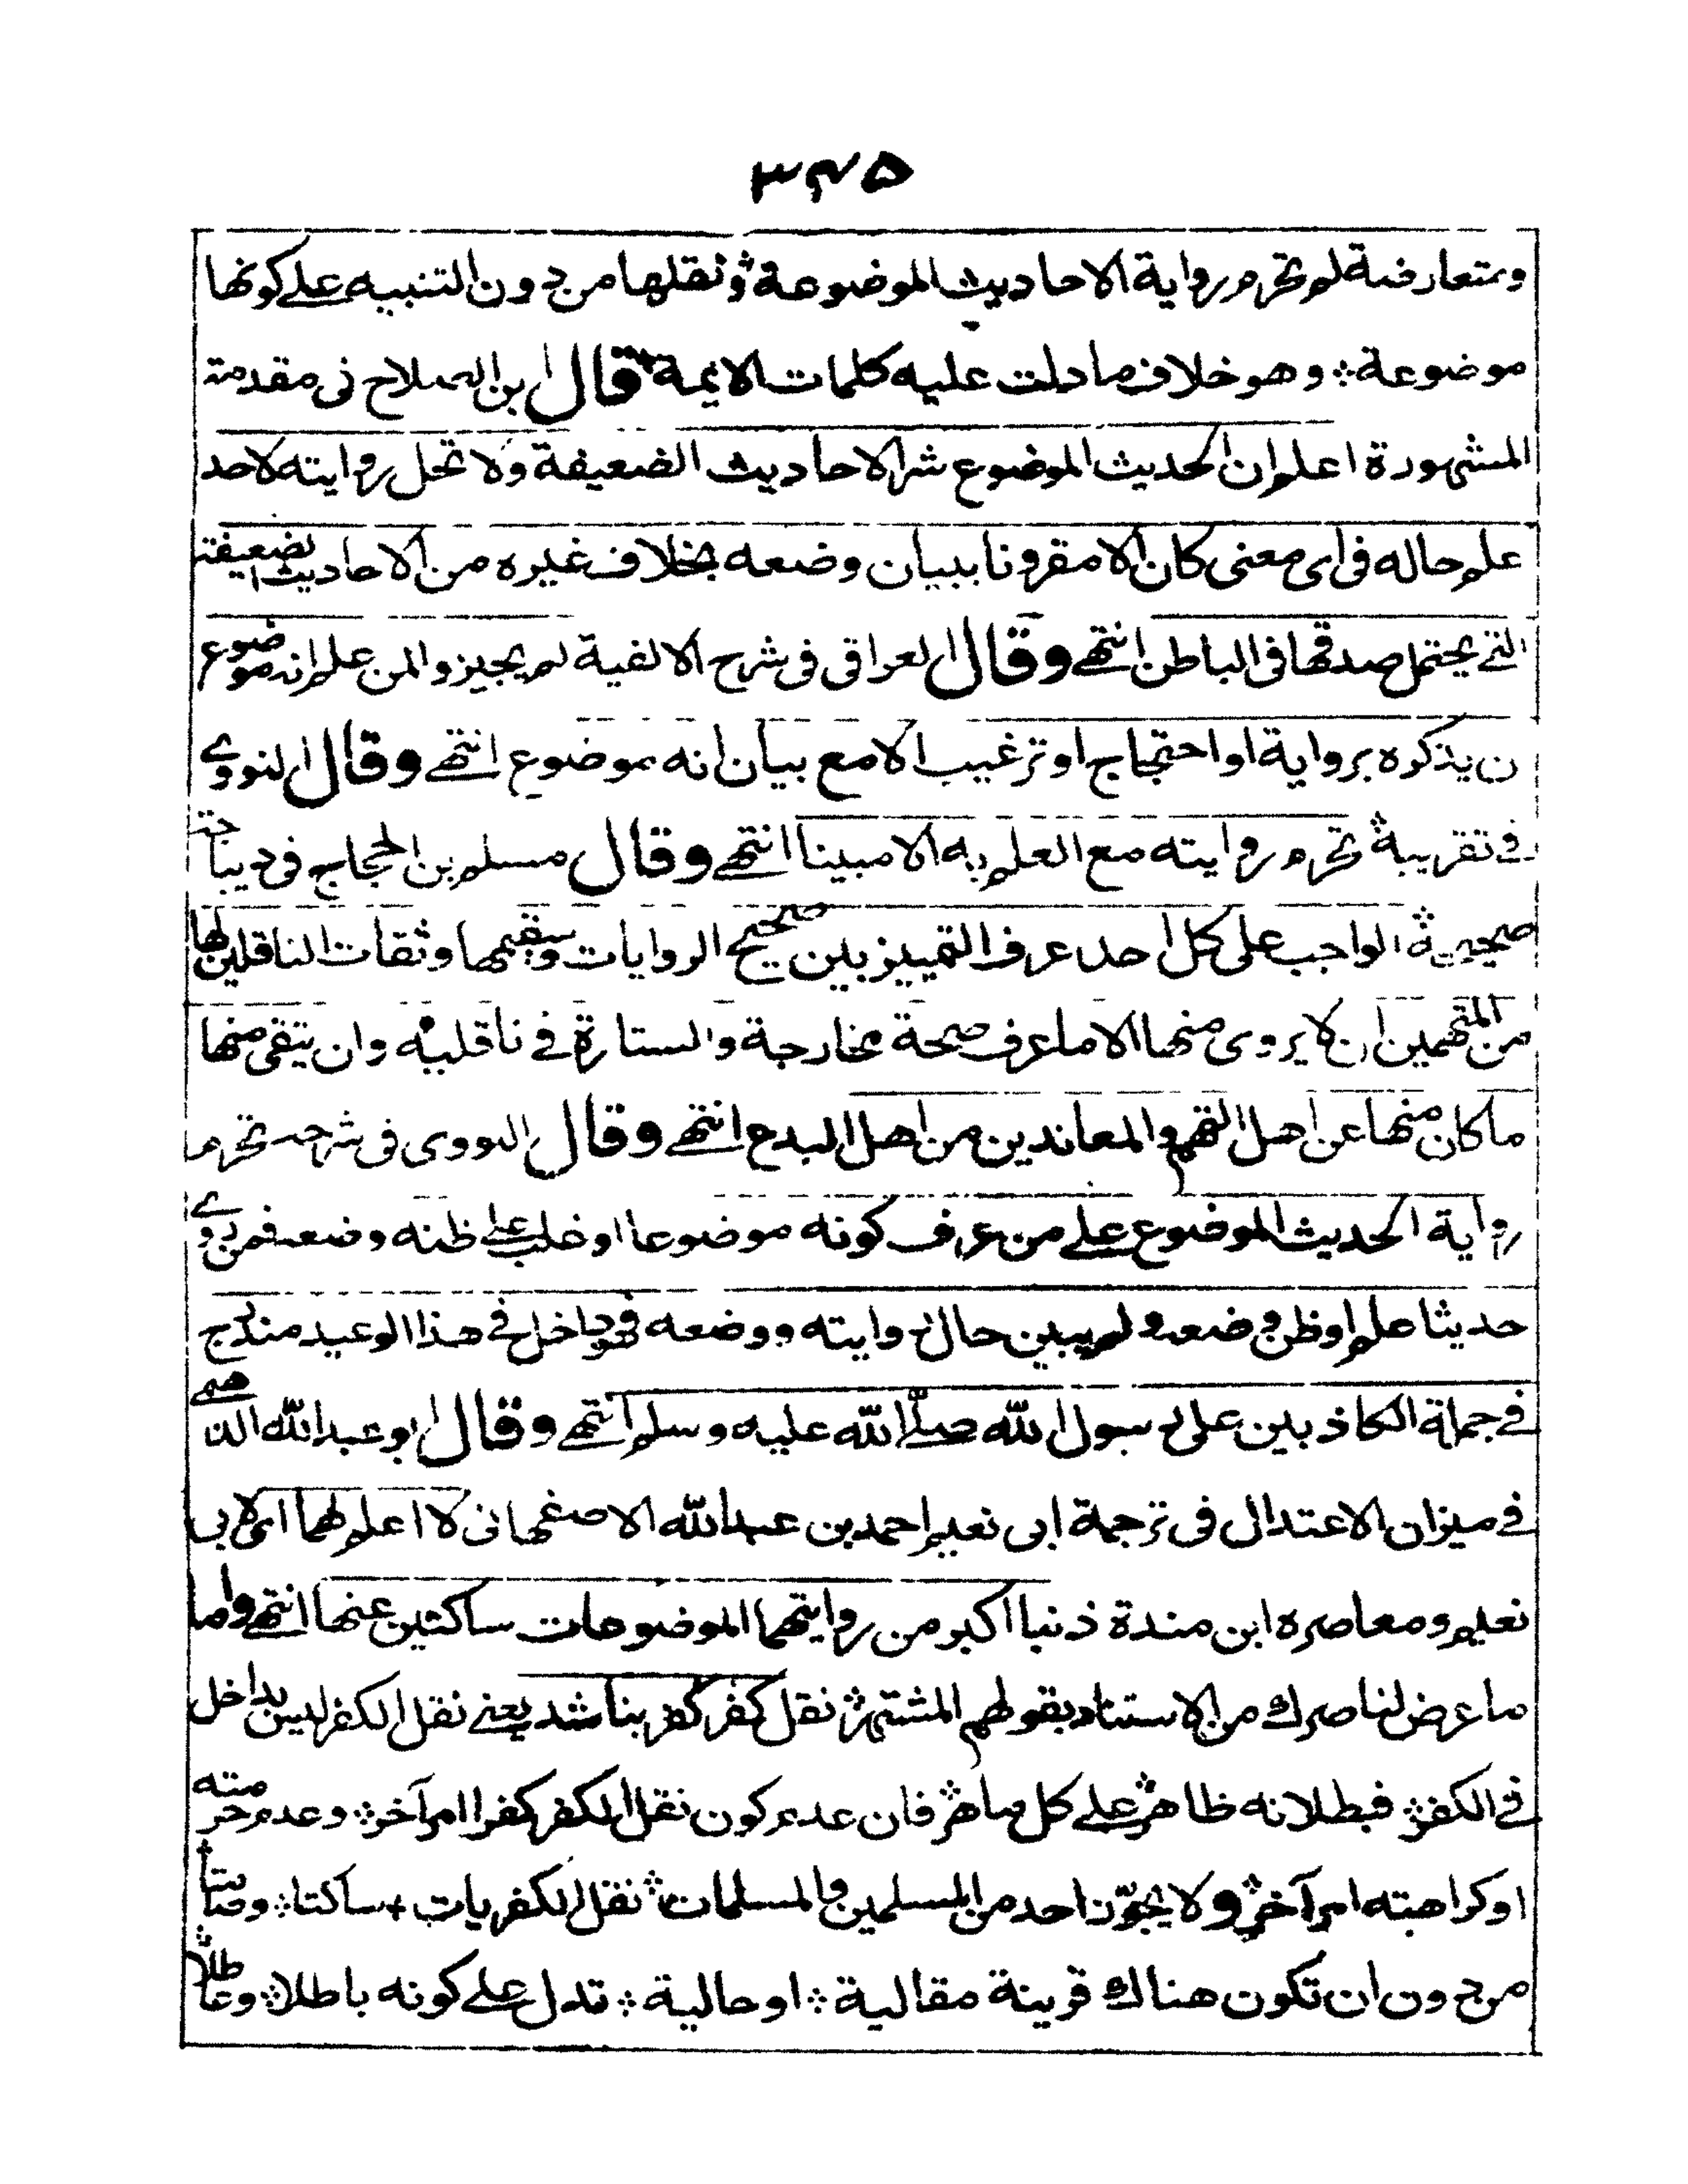 ۳۴۵
ومتعارفة لم تحرم رواية الاحاديث الموضوعة ؞ ونقلها من دون التنبيه على كونها
موضوعة ؞ وهو خلاف ما دلت عليه كلمات الايمة ؞ قال ابن الصلاح فى مقدمته
المشهورة اعلم ان الحديث الموضوع شر الاحاديث الضعيفة ولا تحل روايته لاحد
علم حاله فى اى معنى كان الا مقرونا ببيان وضعه بخلاف غيره من الاحاديث الضعيفة
التى يحتمل صدقها فى الباطن انتهى وقال العراقى فى شرح الالفية لم يجيزوا لمن علم انه موضوع
ن يذكره برواية او احتجاج او ترغيب الا مع بيان انه موضوع انتهى وقال النووى
فى تقريبه ؞ تحرم روايته مع العلم به الا مبينا انتهى وقال مسلم بن الحجاج فى ديباجة
صحيحه ؞ الواجب على كل احد عرف التمييز بين صحيح الروايات وسقيمها وثقات الناقلين لها
من المتهمين ان لا يروى منها الا ما عرف صحة مخارجة والستارة فى ناقليه وان يتقى منها
ما كان منها عن اهل التهم والمعاندين من اهل البدع انتهى وقال النووى فى شرحه تحرم
رواية الحديث الموضوع على من عرف كونه موضوعا او غلب على ظنه وضعه فمن روى
حديثا علم او ظن وضعه ولم يبين حال روايته ووضعه فهو داخل فى هذا الوعيد مندرج
فى جملة الكاذبين على رسول الله صلى الله عليه وسلم انتهى وقال ابو عبد الله الذهبى
فى ميزان الاعتدال فى ترجمة ابى نعيم احمد بن عبد الله الاصفهانى لا اعلم لهما اى لابى
نعيم ومعاصره ابن مندة ذنبا اكبر من روايتهما الموضوعات ساكتين عنها انتهى واما
ما عرض لناصرك من الاستناد بقولهم المشتهر ؞ نقل كفر كفر نباشد يعنى نقل الكفر ليس بداخل
فى الكفر ؞ فبطلانه ظاهر ؞ على كل ماهر ؞ فان عدم كون نقل الكفر كفرا امر آخر ؞ وعدم حرمته
او كراهته امر آخر ؞ ولا يجوّز احد من المسلمين والمسلمات ؞ نقل الكفريات ؞ ساكتا ؞ وصامتا ؞
من دون ان تكون هناك قرينة مقالية ؞ او حالية ؞ تدل على كونه باطلا ؞ وعاطلا ؞